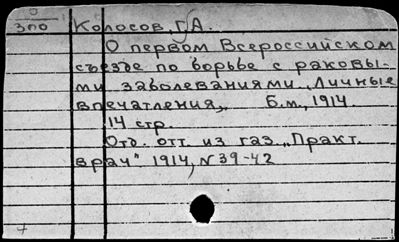 0
3по Колосов Г.А.
О первом Всероссийском
съезде по борьбе с раковы-
ми заболеваниями. Личные
впечатления,. Б.м., 1914.
14 стр.
Отд. отт. из газ. „Практ.
врач" 1914, N39-42